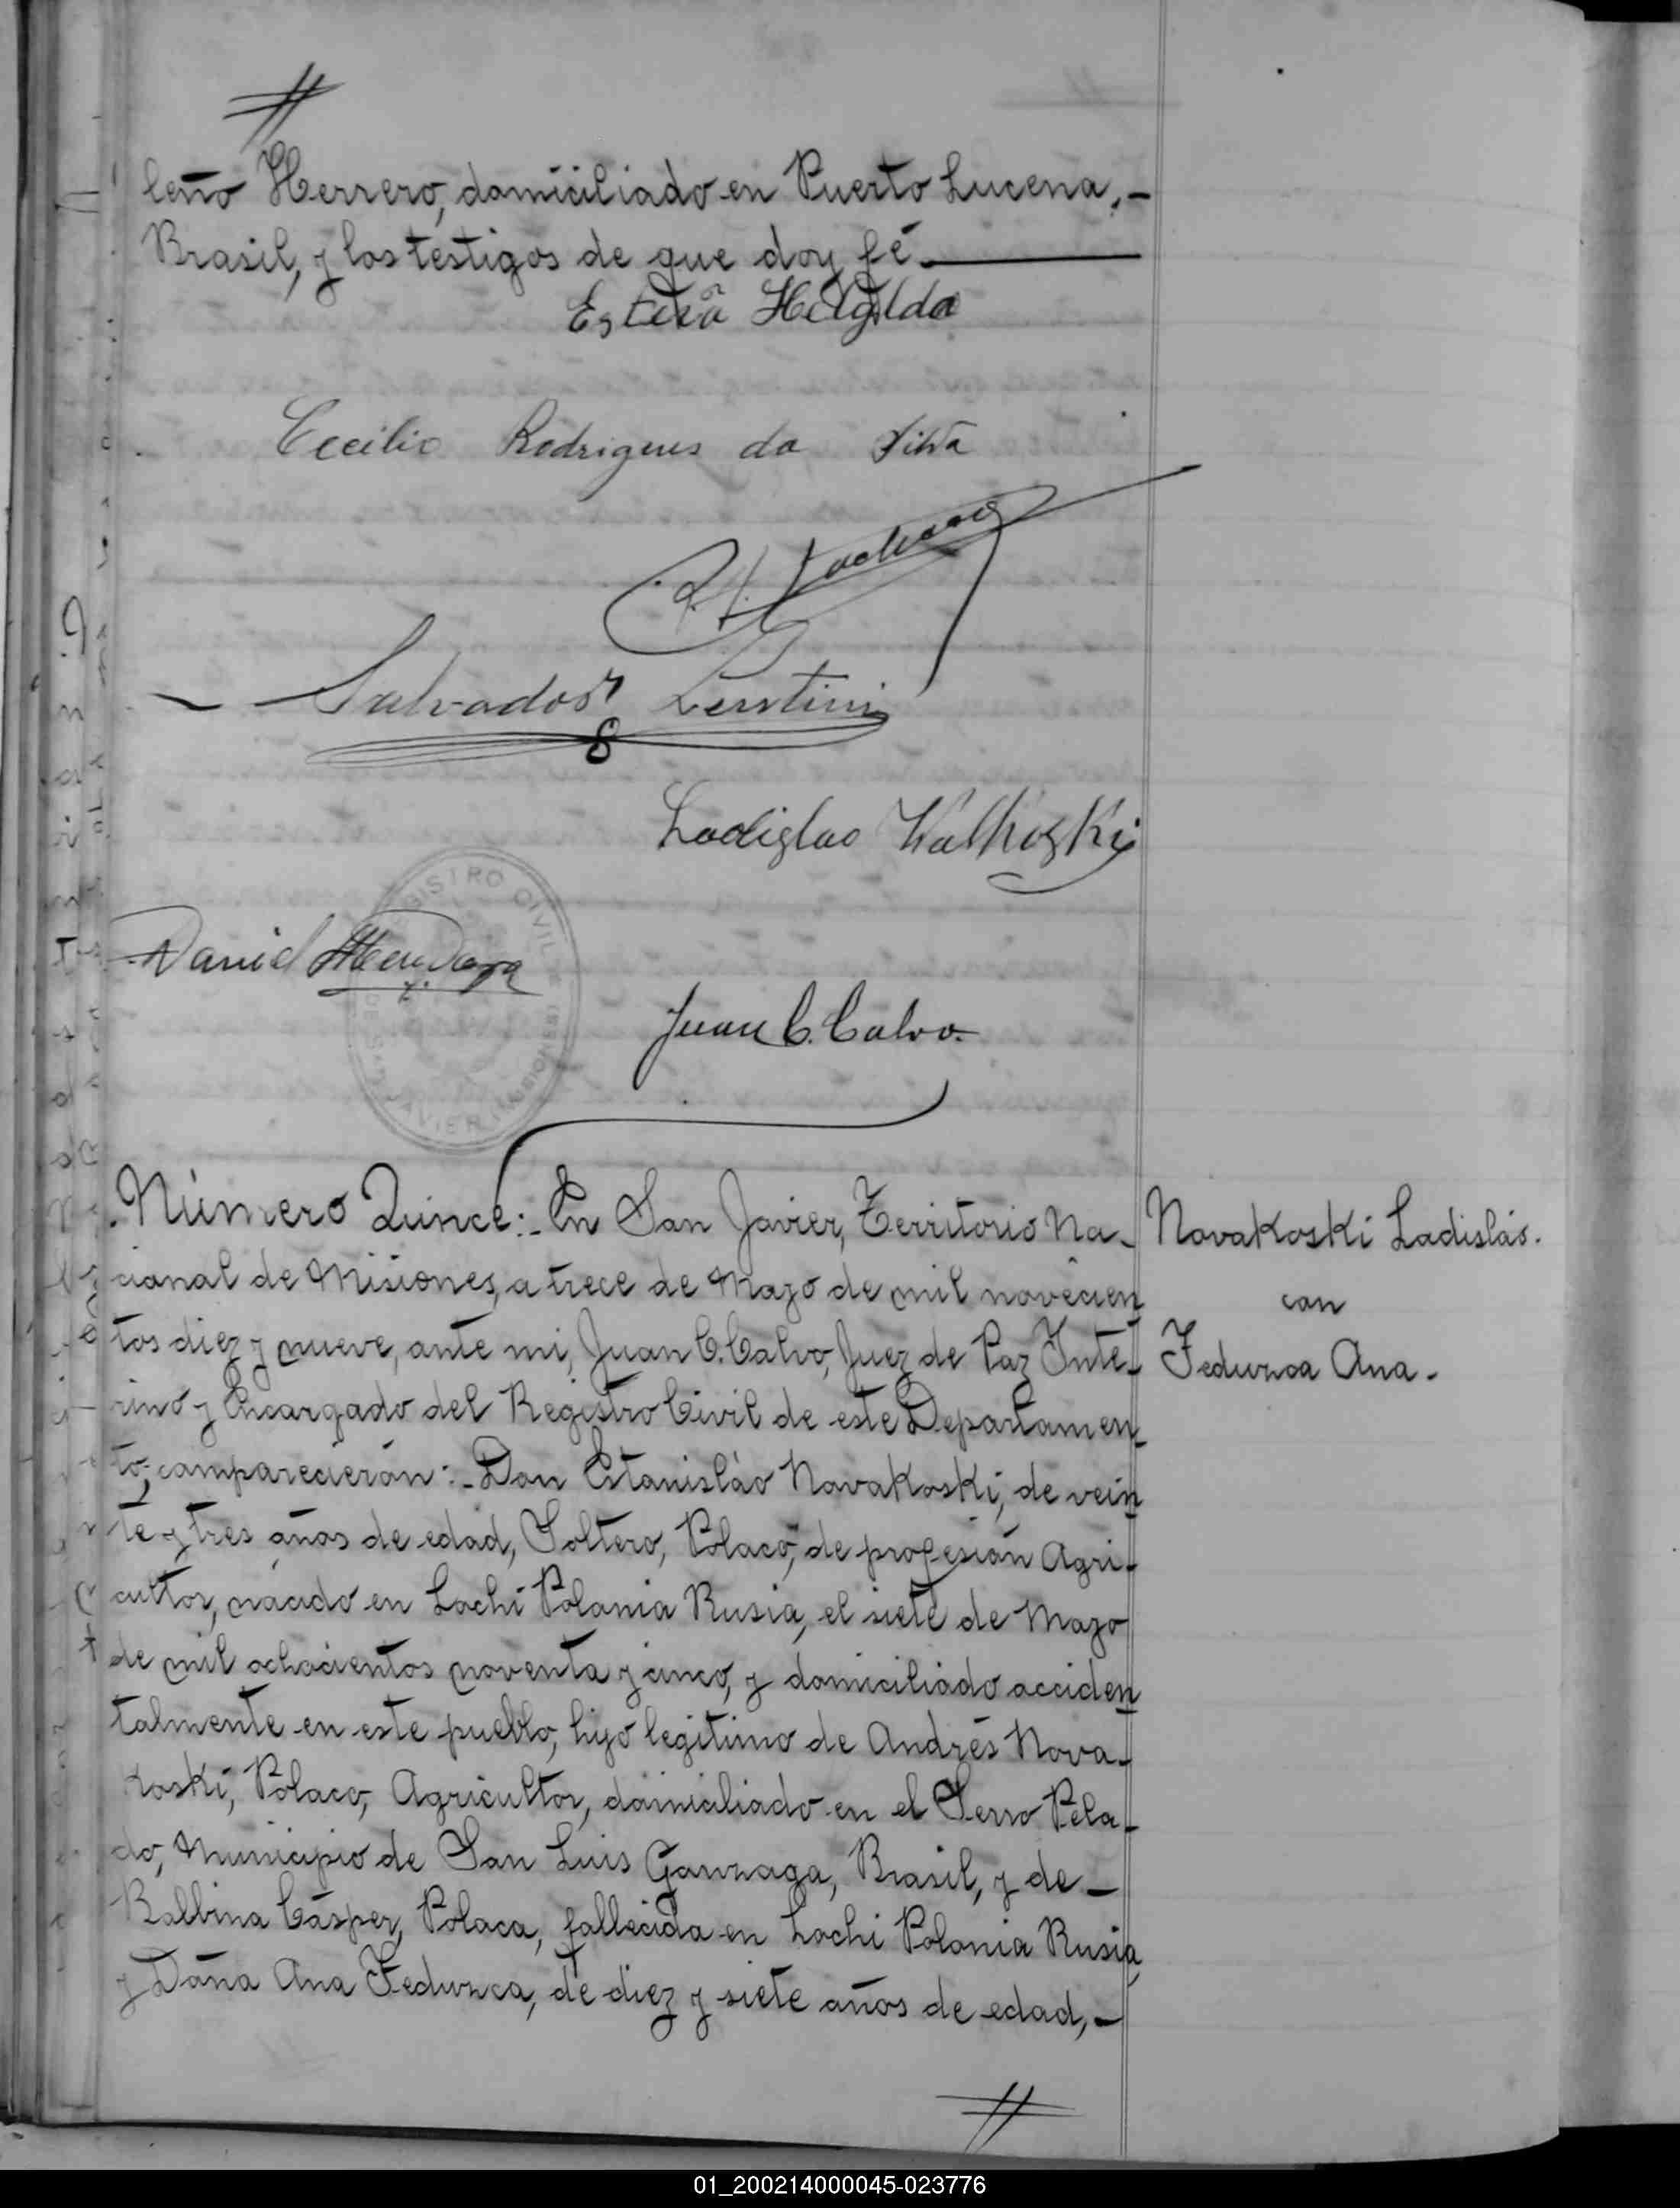 leño Herrero, domiciliado en Puerto Lucena,.-
Brasil, y los testigos de que doy fé.
Cecilio Rodrigues da Silva
Salvador
Ladislao
Daniel Mendoza
REGISTRO CIVIL
JAVIER (MISIONES)
Juan C. Calvo.
Número Quince:- En San Javier, Territorio Na- Novakoski Ladislás.
cional de Misiones, a trece de Mayo de mil novecien con
tos diez y nueve, ante mi, Juan C. Calvo, Juez de Paz Inte- Fedunca Ana.-
rino y Encargado del Registro Civil de este Departamen-
to; comparecierón:- Don Estanisláo Novakoski, de vein
te y tres años de edad, Soltero, Polaco, de profesión Agri-
cultor, nacido en Lochi Polonia Rusia, el siete de Mayo
de mil ochocientos noventa y cinco, y domiciliado acciden
talmente en este pueblo, hijo legitimo de Andrés Nova-
koski, Polaco, Agricultor, domiciliado en el Serro Pela-
do, Municipio de San Luis Gonzaga, Brasil, y de -
Balbina Cásper, Polaca, fallecida en Lochi Polonia Rusia,
y Doña Ana Fedunca, de diez y siete años de edad,-
01_200214000045-023776